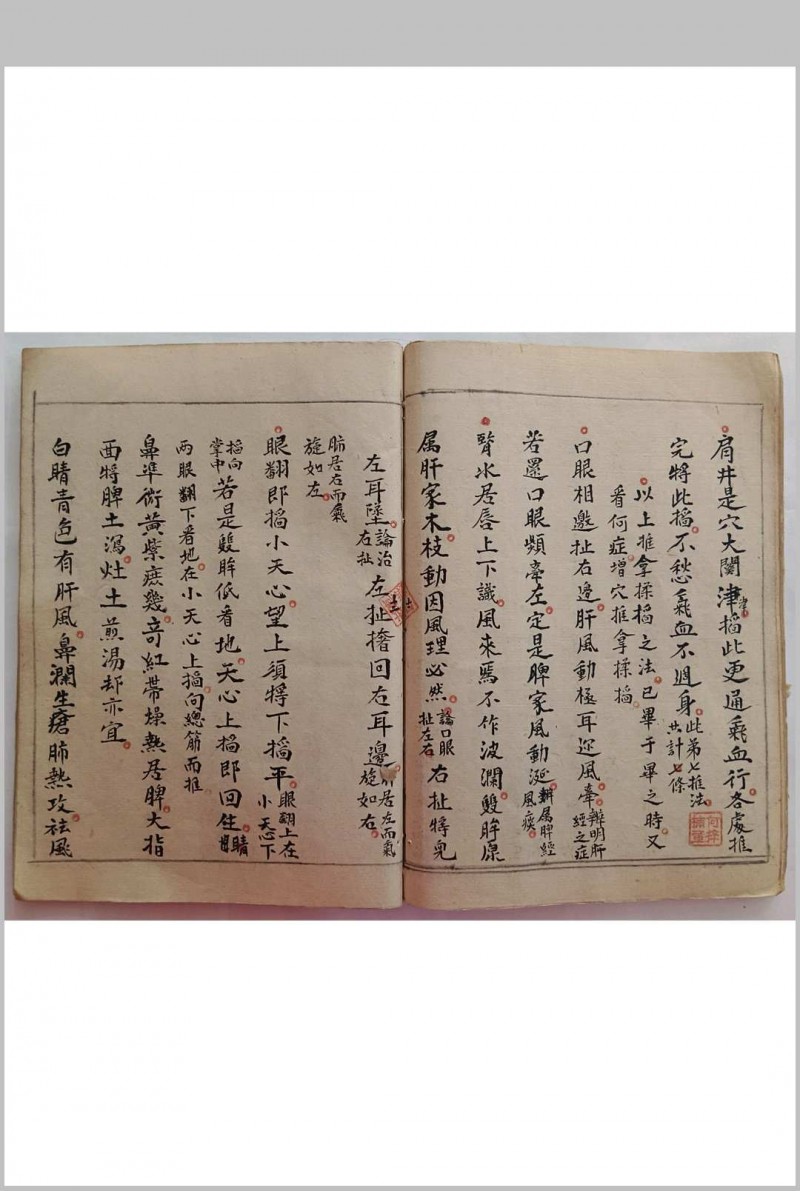 肩井是穴大關津掐此更通氣血行各處推
完將此掐不愁氣血不週身此第七推法共計七條
以上推拿揉掐之法已畢于畢之時又
看何症增穴推拿揉掐
口眼相邀扯右邊肝風動極耳迎風牽辨明肝經之症
若還口眼頻牽左定是脾家風動涎辨屬脾經風痰
腎水居唇上下識風來焉不作波瀾雙眸原
属肝家木枝動因風理必然論口眼扯左右右扯將兒
左耳墜論治右扯左扯撦回右耳邊肝居左而氣旋如右
肺居右而氣旋如左
眼翻即掐小天心望上須將下掐平眼翻上在小天心下
掐向掌中若是雙眸低看地天心上掐即回住睛
两眼翻下看地在小天心上掐向總筋而推
鼻準術黃紫痰幾奇紅帶燥熱居脾大指
西將脾土瀉灶土煎湯却亦宜
白睛青色有肝風鼻瀾生瘡肺熱攻祛風